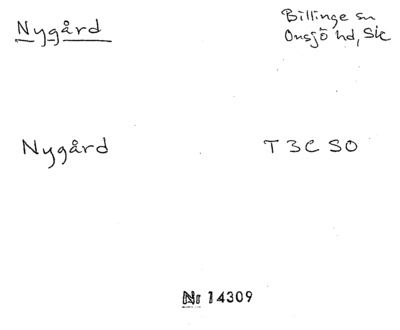 Nygård
Billinge sn
Onsjö hd, Sk
Nygård
T 3C SO
Nr 14309